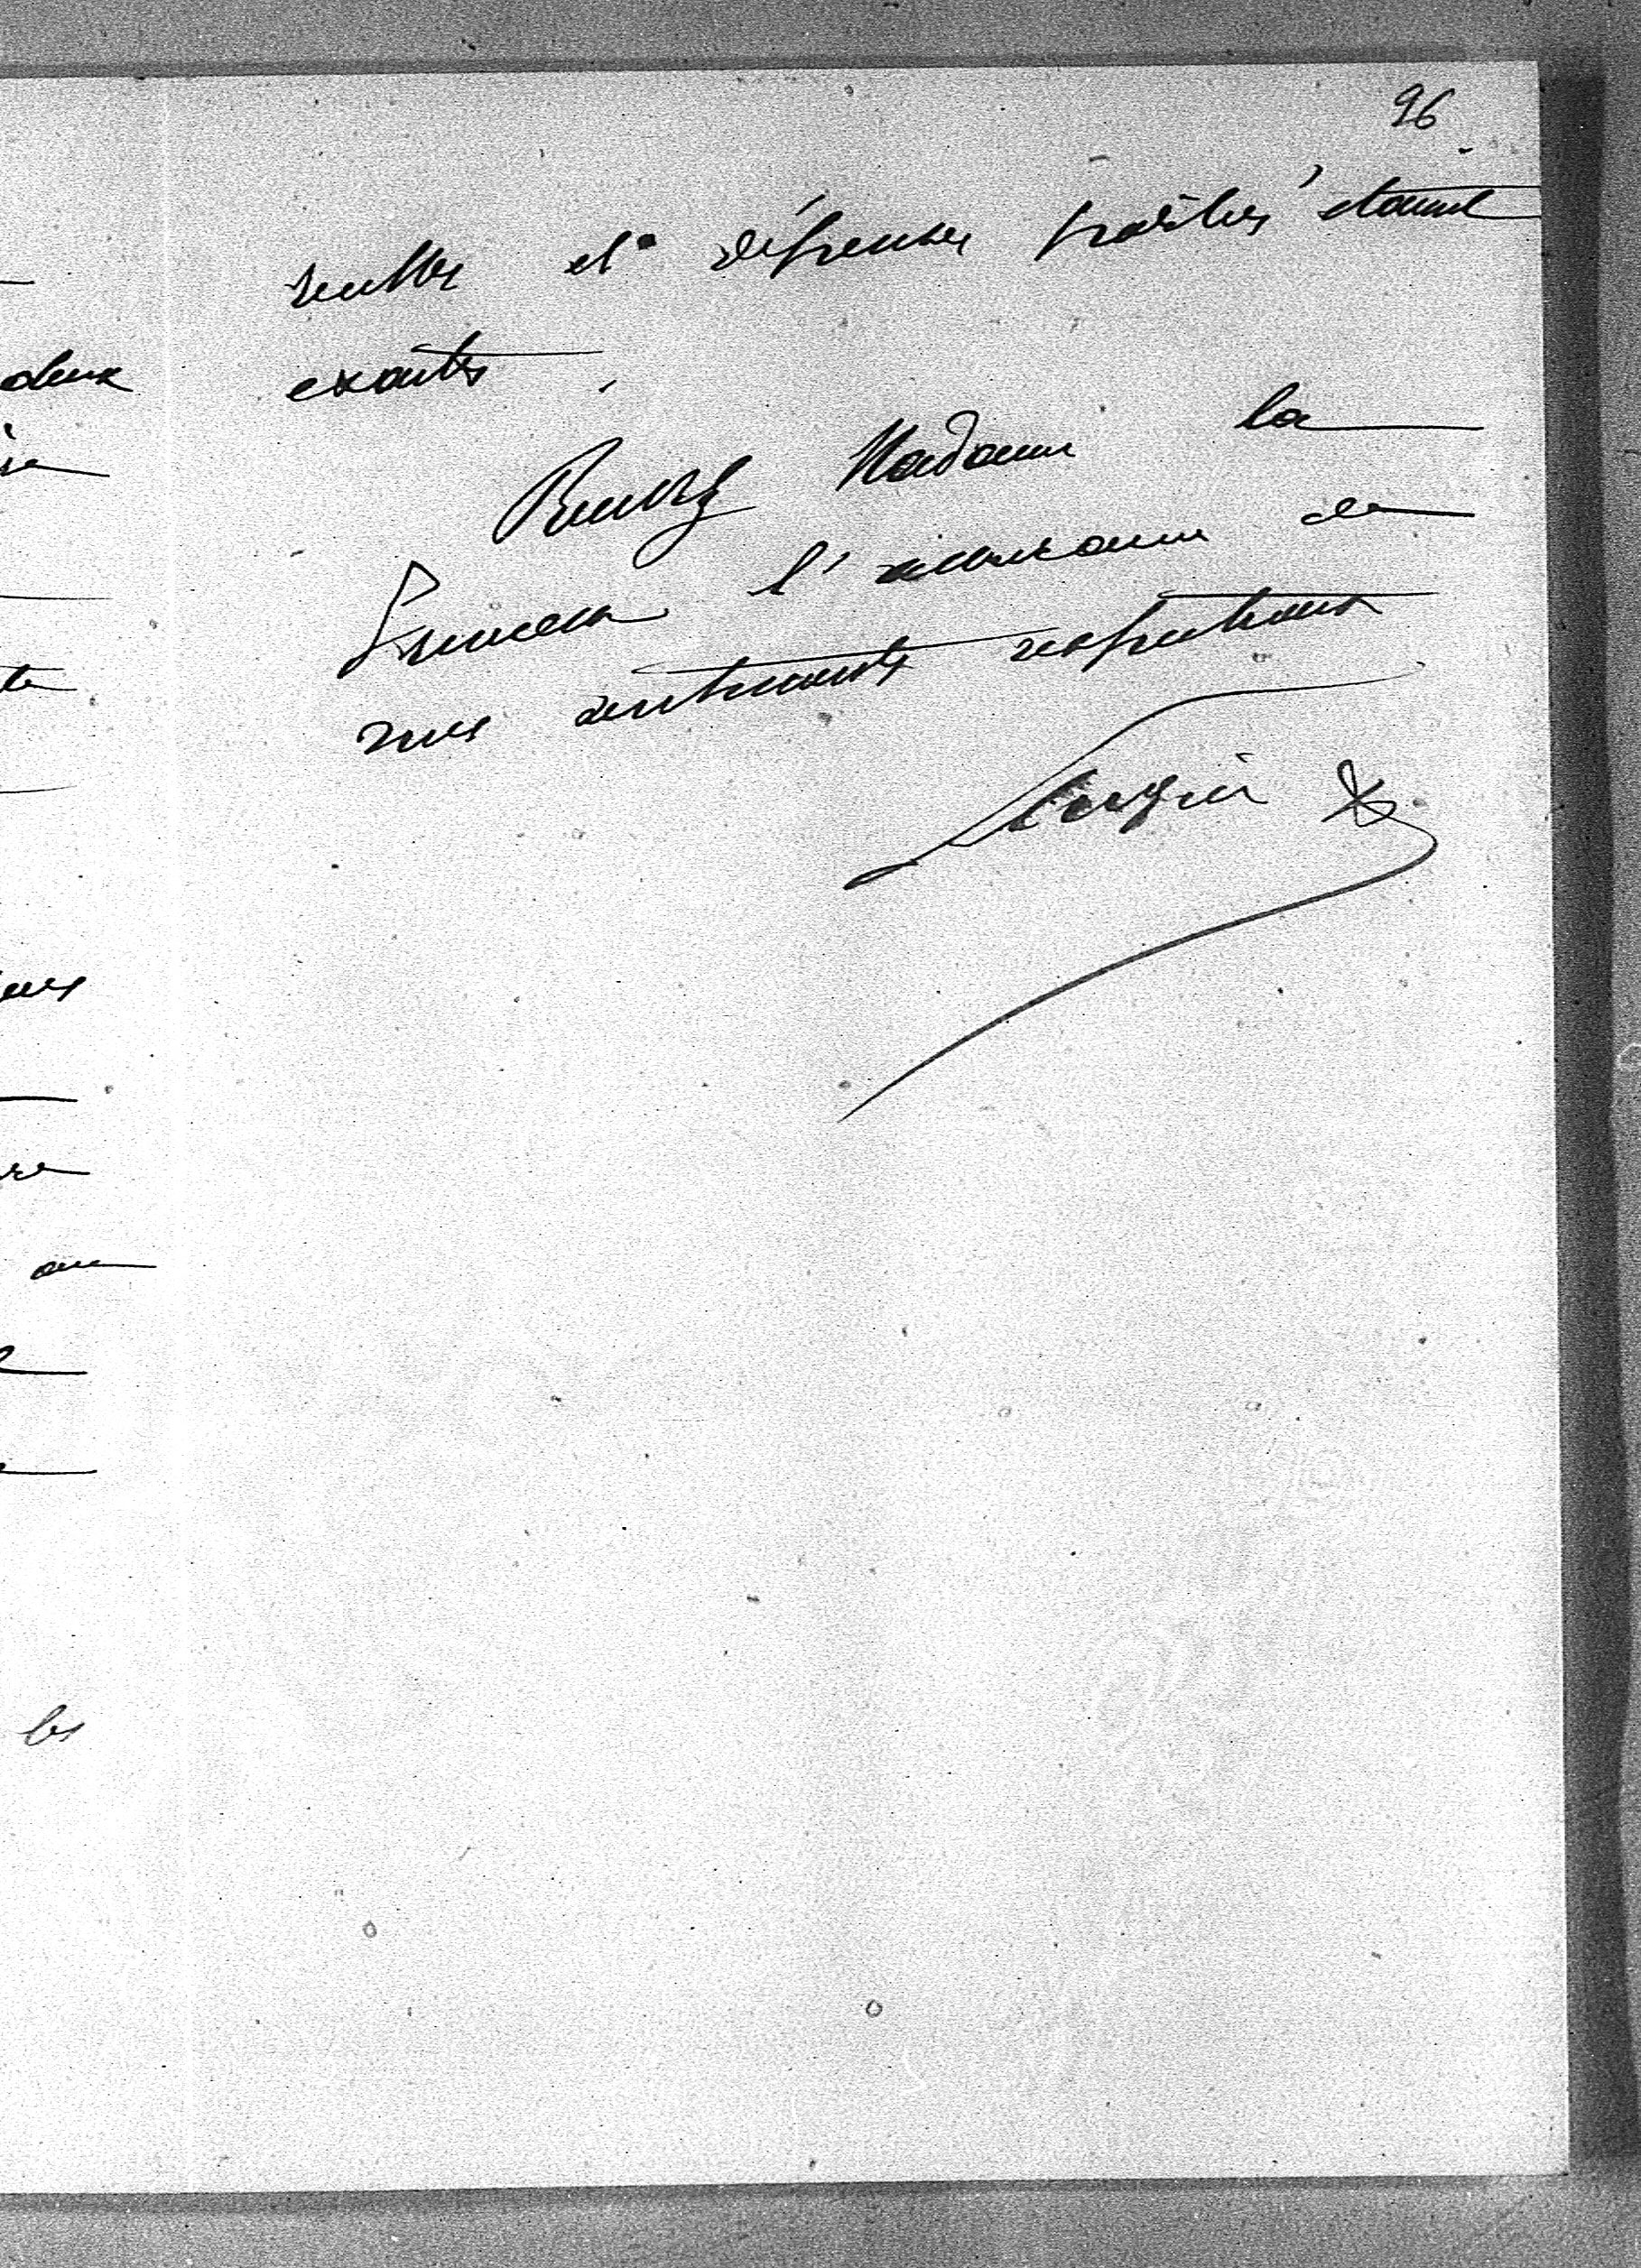 96
recettes et dépenses portées étant
exactes.
Recevez Madame la
Princesse l'assurance de
mes sentiments respectueux
deux
te
au
les